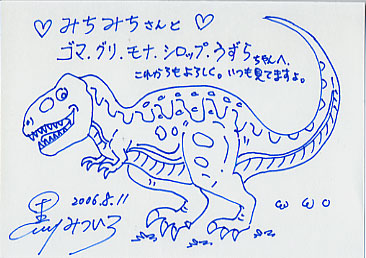 ♡ みちみちさんと ♡
ゴマ.グリ.モナ.シロップ.うずらちゃんへ.
これからもよろしく。いつも見てますよ。
2006.8.11
みついろ